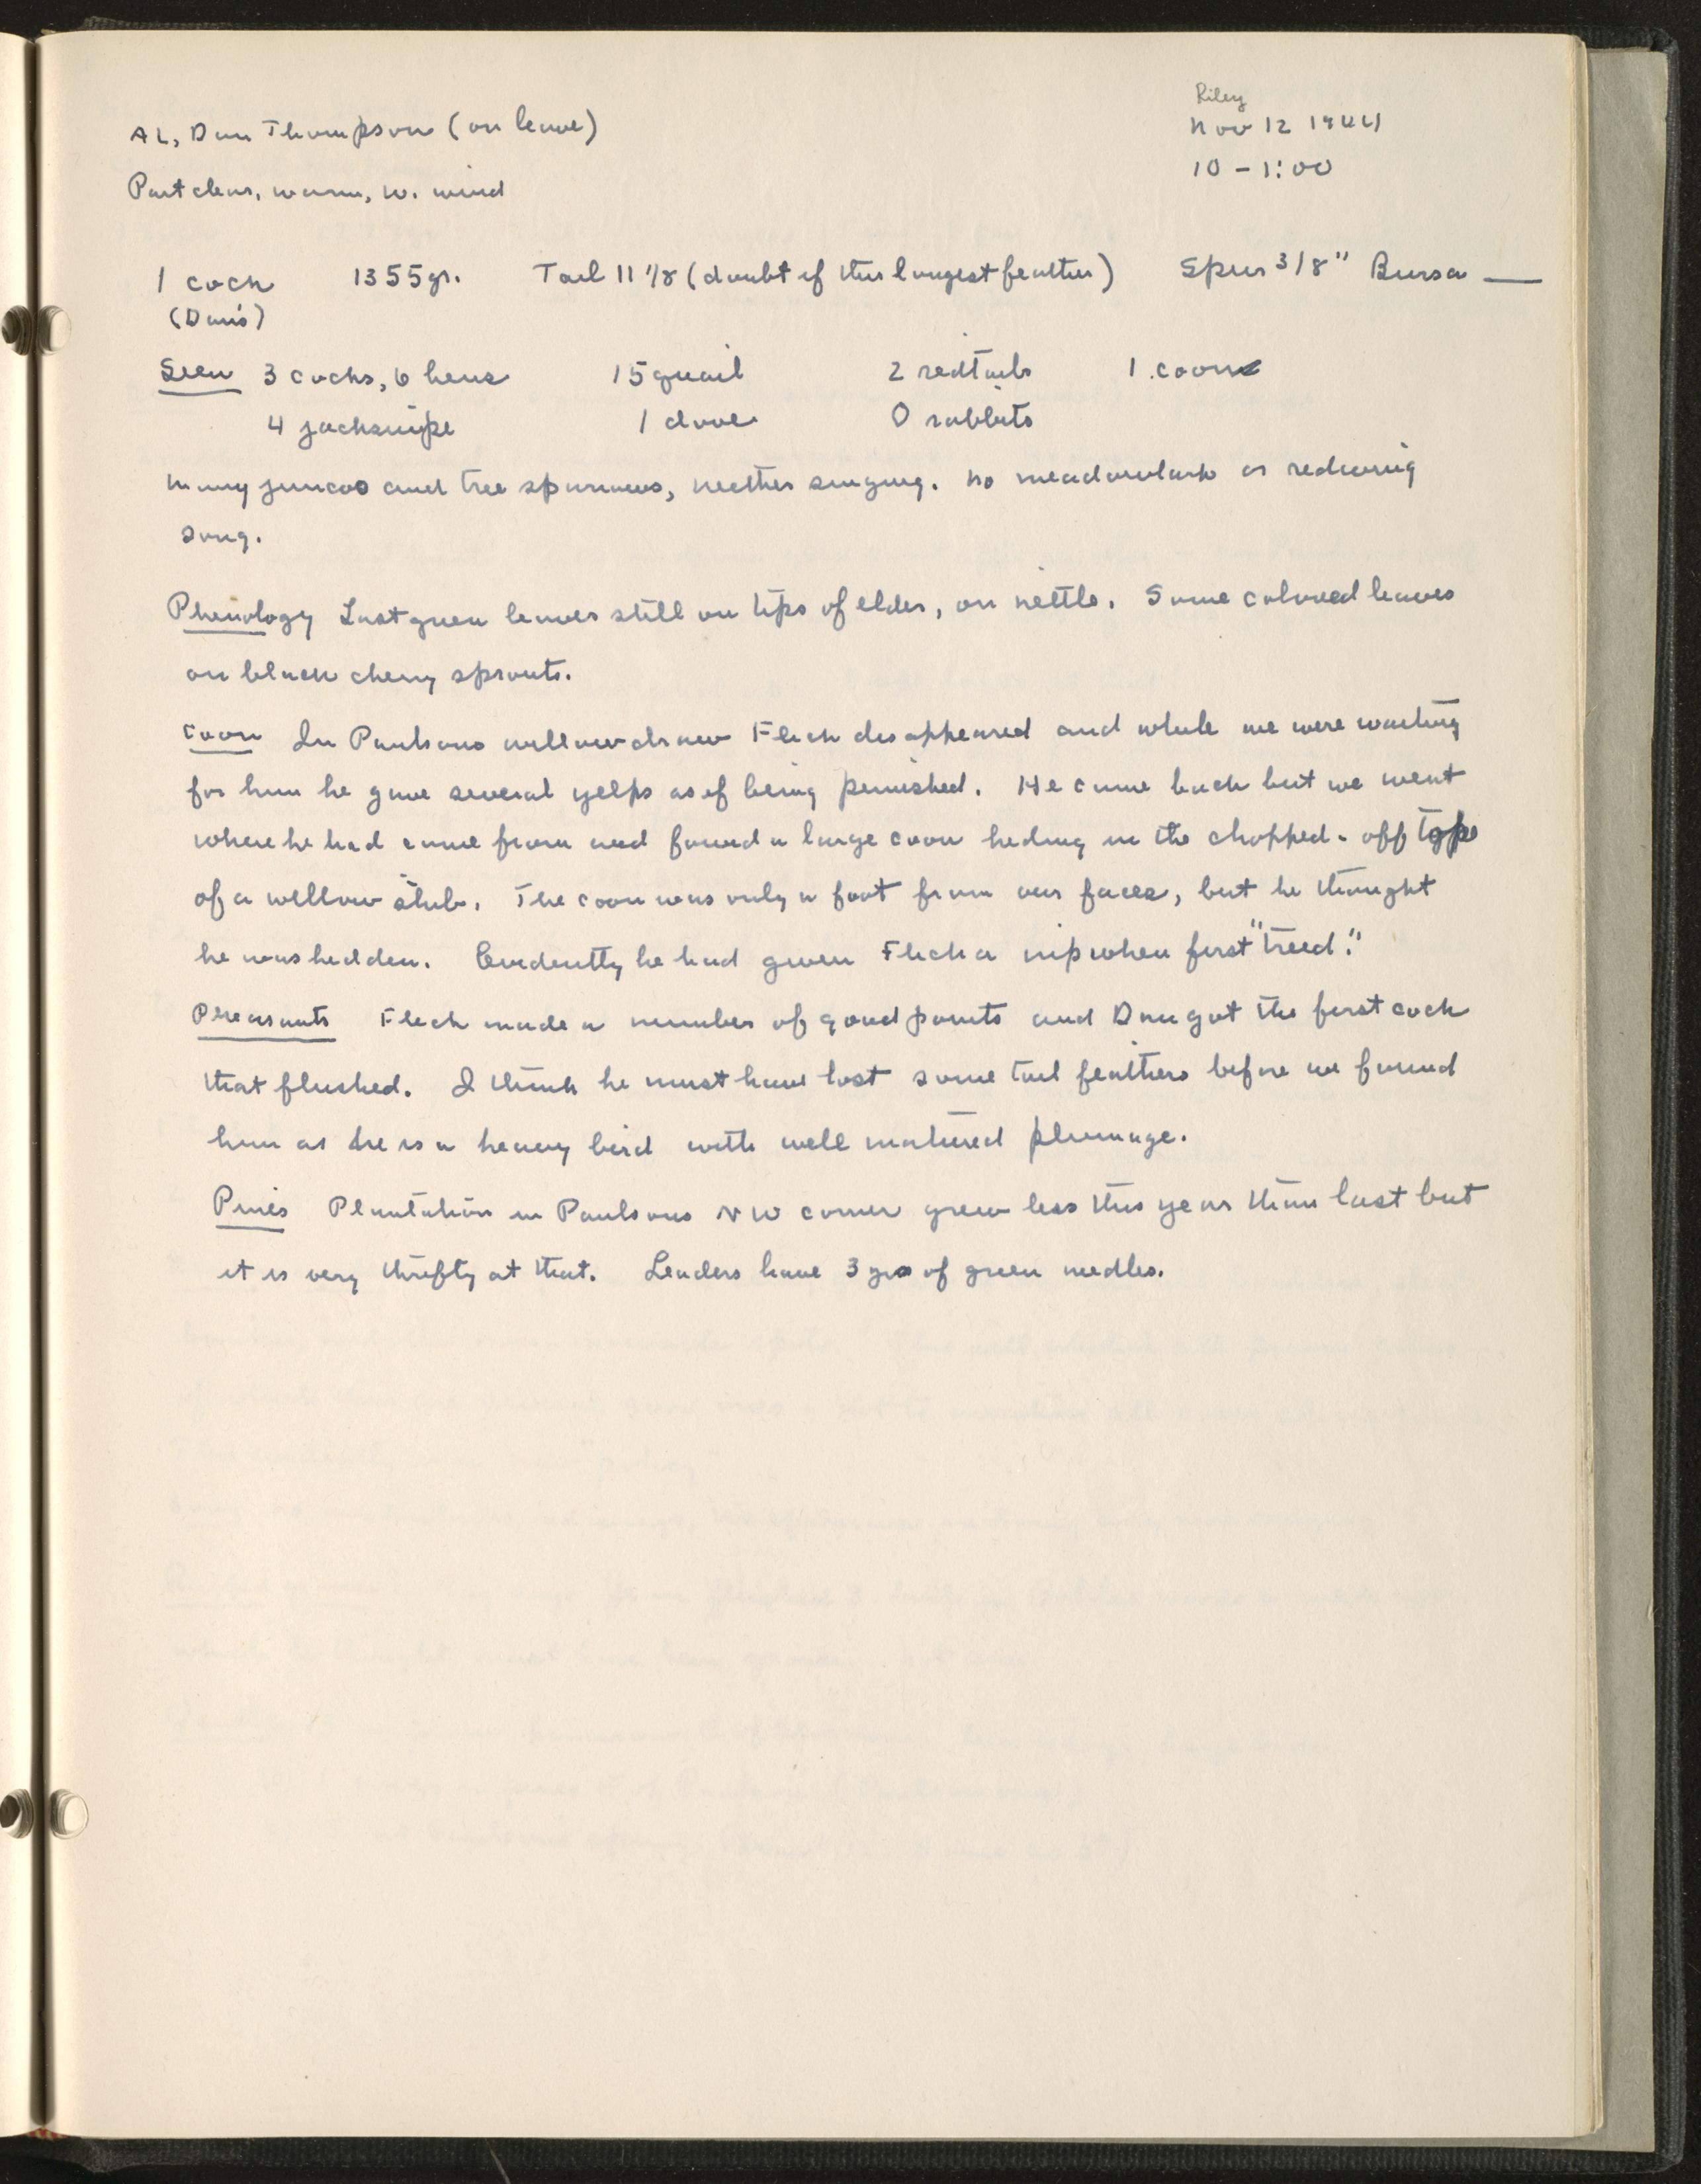 Riley
AL, Dan Thompson (on leave)
Nov 12 1944
Part clear, warm, W. wind
10 - 1:00
1 cock 1355 gr. Tail 11 1/8 (doubt if this longest feather) Spur 3/8" Bursa —
(Dan's)
Seen 3 cocks, 6 hens 15 quail 2 redtails 1 coon
4 jacksnipe 1 dove 0 rabbits
Many juncos and tree sparrows, neither singing. No meadowlark or redwing
song.
Phenology Last green leaves still on tips of elder, on nettle. Some colored leaves
on black cherry sprouts.
Coon In Paulsons willow draw Flick disappeared and while we were waiting
for him he gave several yelps as if being punished. He came back but we went
where he had come from and found a large coon hiding in the chopped-off top
of a willow stub. The coon was only a foot from our faces, but he thought
he was hidden. Evidently he had given Flick a nip when first "treed."
Pheasants Flick made a number of good points and Dan got the first cock
that flushed. I think he must have lost some tail feathers before we found
him as he is a heavy bird with well matured plumage.
Pines Plantation in Paulsons NW corner grew less this year than last but
it is very thrifty at that. Leaders have 3 yrs of green needles.